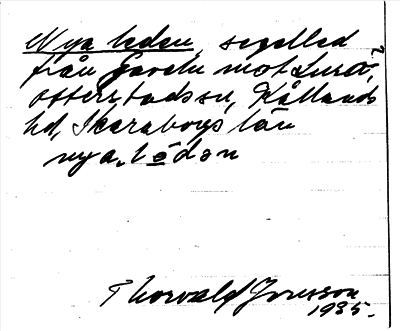 Nya leden, segelled
från Gaveln mot Lurö?,
Otterstads sn, Kållands
hd, Skaraborgs län
nya, lēdən
Thorvald Jonsson
1935.